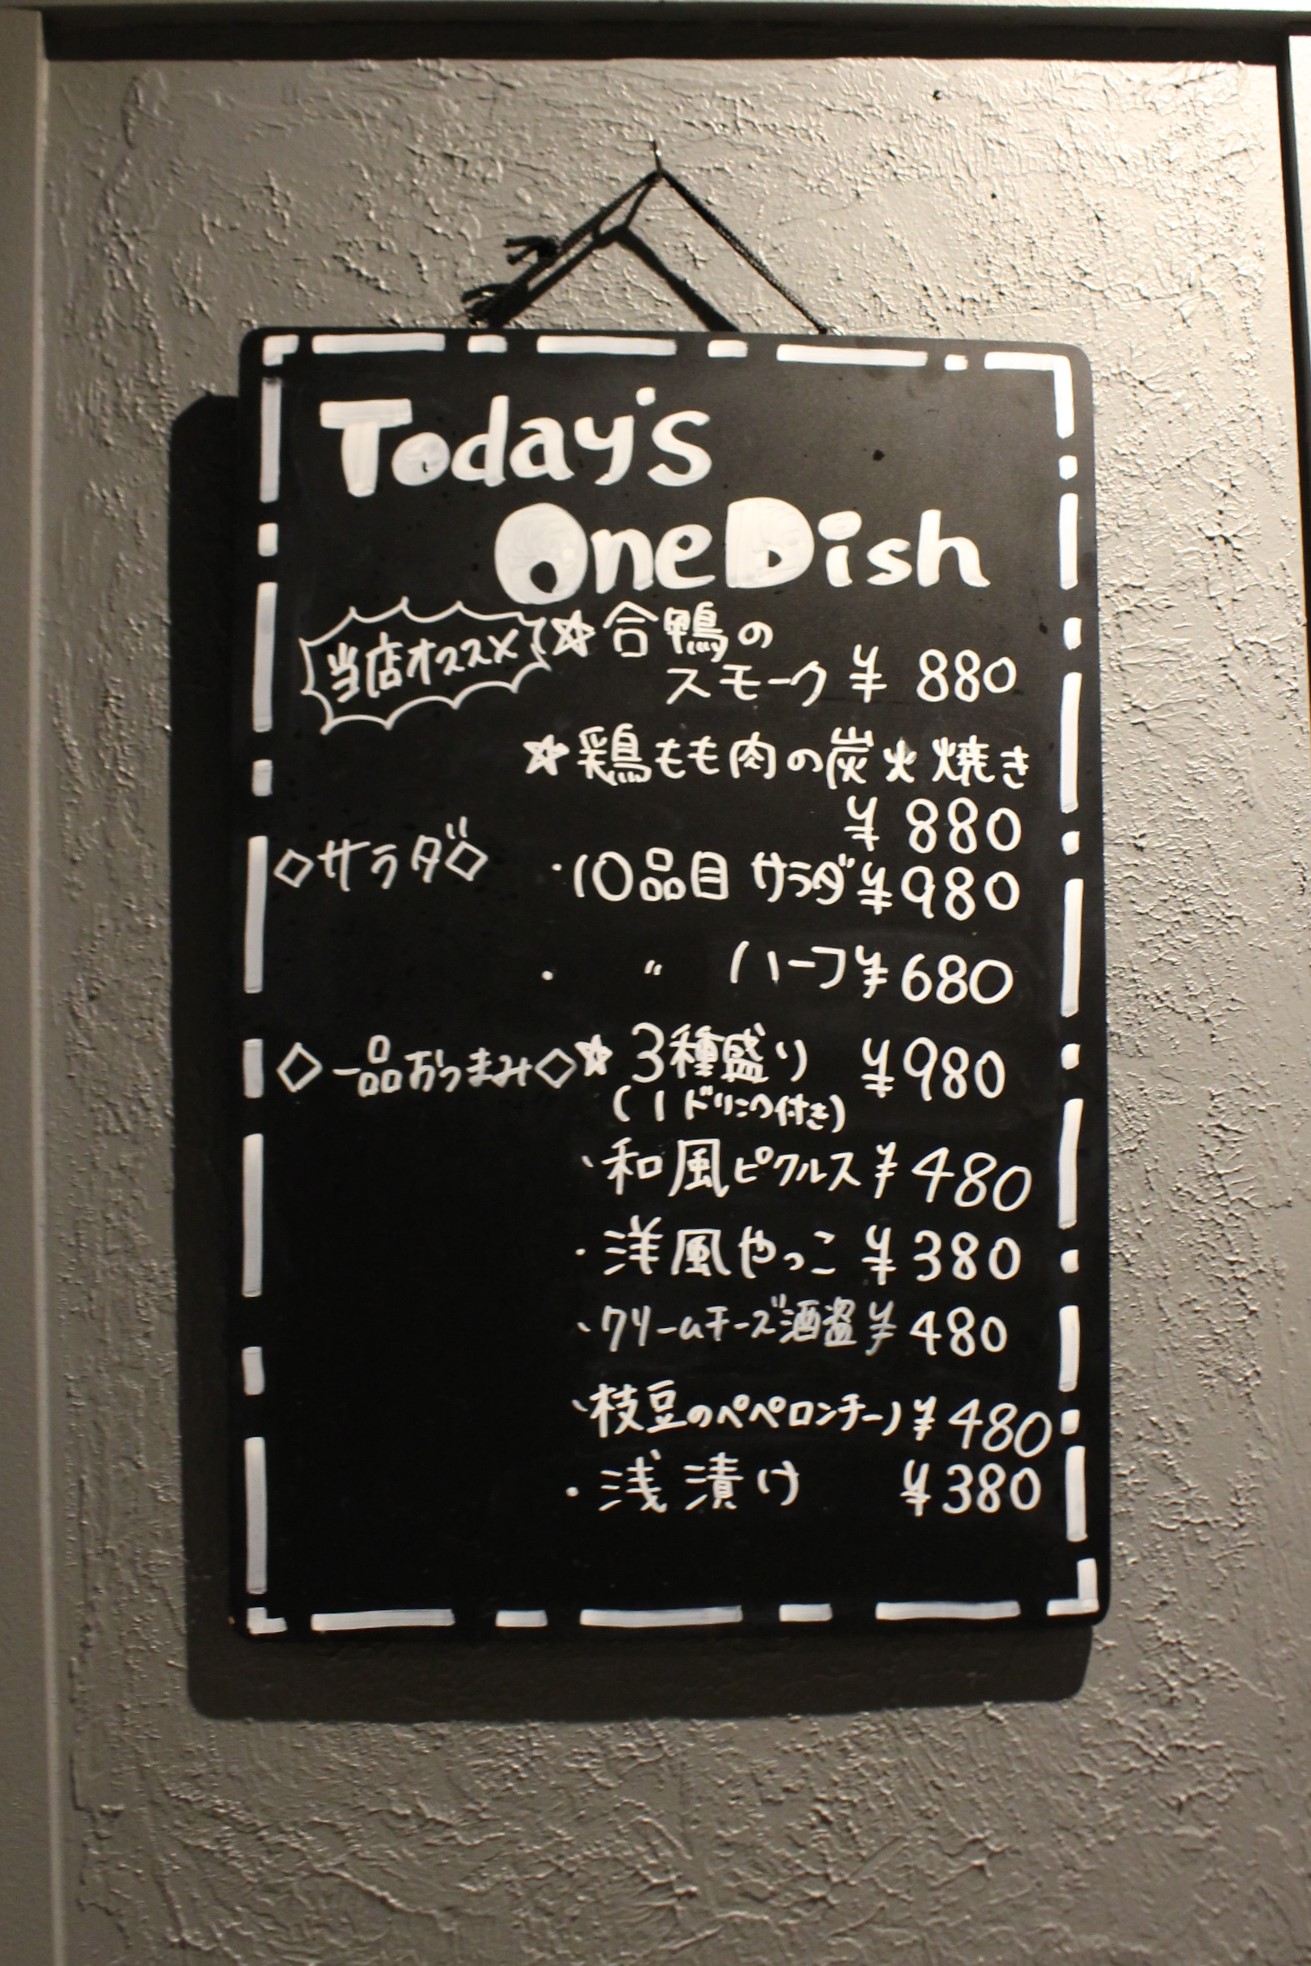 Today's
One Dish
当店オススメ ☆合鴨の
スモーク ¥880
☆鶏もも肉の炭火焼き
¥880
◇サラダ◇ ・10品目 サラダ ¥980
・ 〃 ハーフ ¥680
◇一品おつまみ◇ ☆3種盛り ¥980
(1ドリンク付き)
・和風ピクルス ¥480
・洋風やっこ ¥380
・クリームチーズ酒盗 ¥480
・枝豆のペペロンチーノ ¥480
・浅漬け ¥380